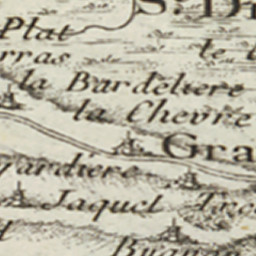 S. D
Plat
rras
te
la Bardeliere
la Chevre
Gra
gardiere
Jaquel
Buanan